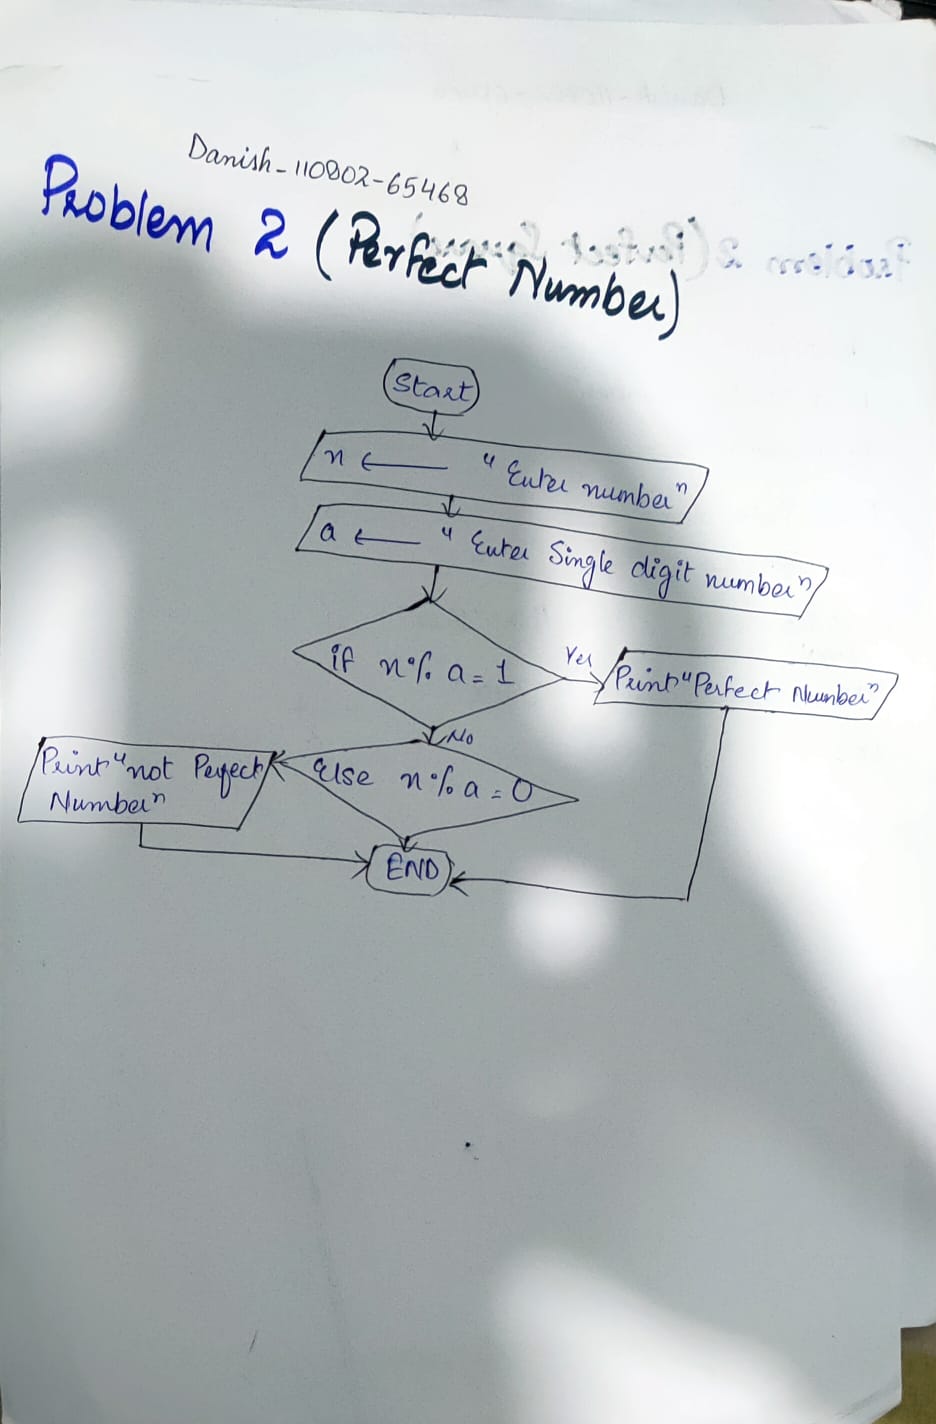 Danish-110802-65468
Problem 2 (Perfect Number)
Start
n ← "Enter number"
a ← "Enter Single digit number"
if n% a = 1
Yes
Print "Perfect Number"
No
Else n%a = 0
Print "not Perfect
Number"
END